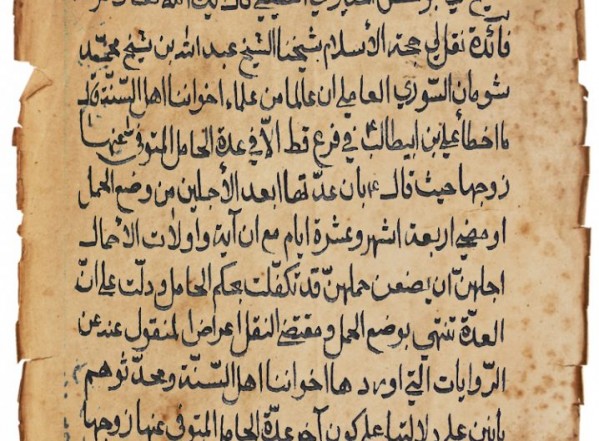 فائدة نقل لي حجة الاسلام شيخنا الشيخ عبد الله بن شيخ محمد
شومان السوري العاملي ان عالما من علماء اخواننا اهل السنّة
ما اخطأ علي بن ابيطالب في فرع قط الّا في عدة الحامل المتوفى عنها
زوجها حيث قال بان عدتها ابعد الأجلين من وضع الحمل
او مضي اربعة اشهر وعشرة ايام مع ان آية واولات الاحمال
اجلهنّ ان يضعن حملهنّ قد تكفّلت بحكم الحامل ودلّت على انّ
العدّة تنتهي بوضع الحمل ومقتضى النقل اعراض المنقول عنه عن
الرّوايات التي اوردها اخواننا اهل السّنّة ومحدّثوهم
على كون آخر عدّة الحامل المتوفى عنها زوجها